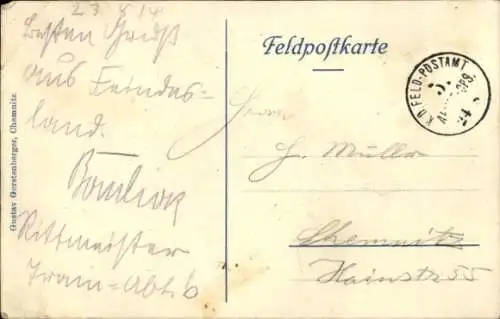 23 8 14
Besten Gruß
aus Feindes-
land.
Rittmeister
Train=Abt. 6
Gustav Gerstenberger, Chemnitz.
Feldpostkarte
K.D. FELD-POSTAMT
24 8
Herrn
G. Müller
Chemnitz
Hainstr 55